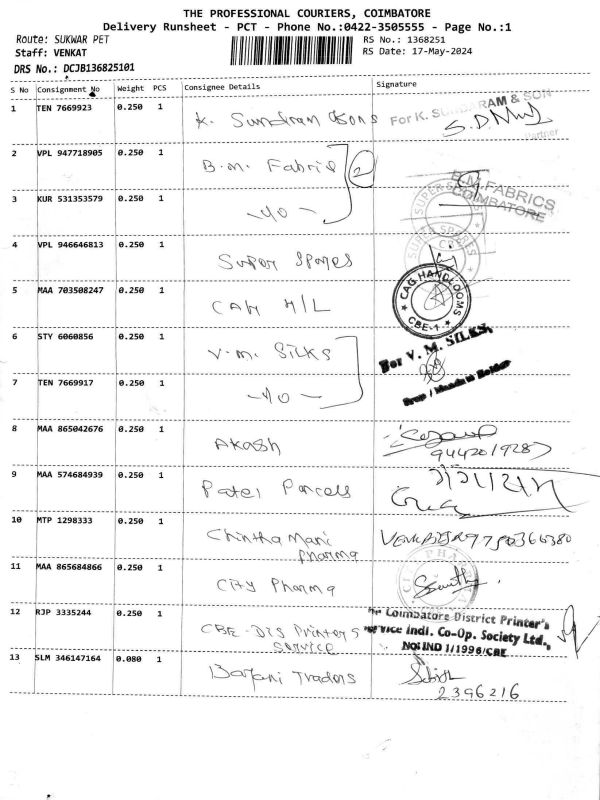 THE PROFESSIONAL COURIERS, COIMBATORE
Delivery Runsheet - PCT - Phone No.:0422-3505555 - Page No.:1
Route: SUKWAR PET
RS No.: 1368251
Staff: VENKAT
RS Date: 17-May-2024
DRS No.: DCJB136825101
S No Consignment No Weight PCS Consignee Details Signature
1 TEN 7669923 0.250 1 K. Sundram & Sons For K. SUNDARAM & SON
Partner
2 VPL 947718905 0.250 1 B.M. Fabric 2
B.M.FABRICS
COIMBATORE
3 KUR 531353579 0.250 1 SUPER SPARES
4 VPL 946646813 0.250 1 Super Spares
5 MAA 703508247 0.250 1 CAG H/L CAG HANDLOOMS
CBE-1
6 STY 6060856 0.250 1 V.M. SILKS For V. M. SILKS,
7 TEN 7669917 0.250 1
8 MAA 865042676 0.250 1 Akash
9442019287
9 MAA 574684939 0.250 1 Patel Parcels
10 MTP 1298333 0.250 1 Chintha Mani
Pharma
11 MAA 865684866 0.250 1 City Pharma
12 RJP 3335244 0.250 1 CBE-DIS Printers
Service
The Coimbatore District Printer's
Service Indl. Co-Op. Society Ltd.,
No: IND 1/1996/CBE
13 SLM 346147164 0.080 1 Traders
2396216